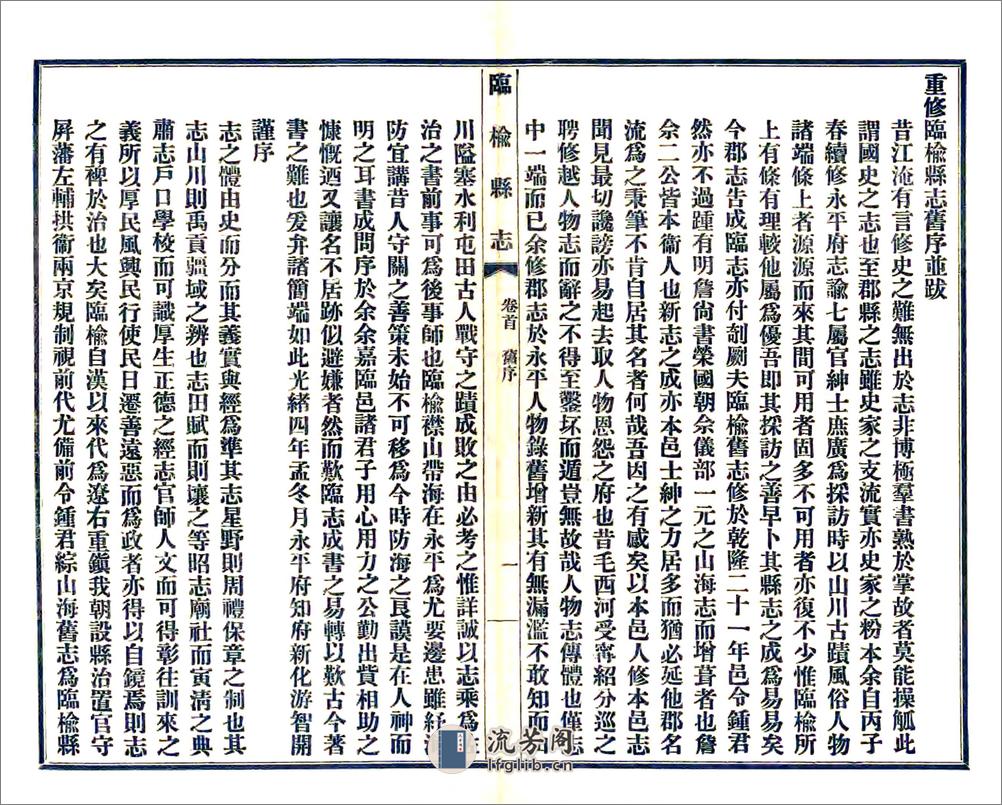 重修臨榆縣志舊序並跋
昔江淹有言修史之難無出於志非博極羣書熟於掌故者莫能操觚此
謂國史之志也至郡縣之志雖史家之支流實亦史家之粉本余自丙子
春續修永平府志諭七屬官紳士庶廣為採訪時以山川古蹟風俗人物
諸端條上者源源而來其間可用者固多不可用者亦復不少惟臨榆所
上有條有理較他屬為優吾即其採訪之善早卜其縣志之成為易易矣
今郡志告成臨志亦付剞劂夫臨榆舊志修於乾隆二十一年邑令鍾君
然亦不過踵有明詹尚書榮國朝佘儀部一元之山海志而增葺者也詹
佘二公皆本衞人也新志之成亦本邑士紳之力居多而猶必延他郡名
流為之秉筆不肯自居其名者何哉吾因之有感矣以本邑人修本邑志
聞見最切讒謗亦易起去取人物恩怨之府也昔毛西河受甯紹分巡之
聘修越人物志而辭之不得至鑿坏而遁豈無故哉人物志傳體也僅志
中一端而已余修郡志於永平人物錄舊增新其有無漏濫不敢知而山
臨榆縣志
卷首 舊序
一
川隘塞水利屯田古人戰守之蹟成敗之由必考之惟詳誠以志乘為
治之書前事可為後事師也臨榆襟山帶海在永平為尤要邊患雖紓
防宜講昔人守關之善策未始不可移為今時防海之良謨是在人神而
明之耳書成問序於余余嘉臨邑諸君子用心用力之公勤出貲相助之
慷慨迺又讓名不居跡似避嫌者然而歎臨志成書之易轉以歎古今著
書之難也爰弁諸簡端如此光緒四年孟冬月永平府知府新化游智開
謹序
志之體由史而分而其義實與經為準其志星野則周禮保章之制也其
志山川則禹貢疆域之辨也志田賦而則壤之等昭志廟社而寅清之典
肅志戶口學校而可識厚生正德之經志官師人文而可得彰往訓來之
義所以厚民風興民行使民日遷善遠惡而為政者亦得以自鏡焉則志
之有裨於治也大矣臨榆自漢以來代為遼右重鎭我朝設縣治置官守
屏藩左輔拱衞兩京規制視前代尤備前令鍾君綜山海舊志為臨榆縣
流芳阁
lfglib.cn